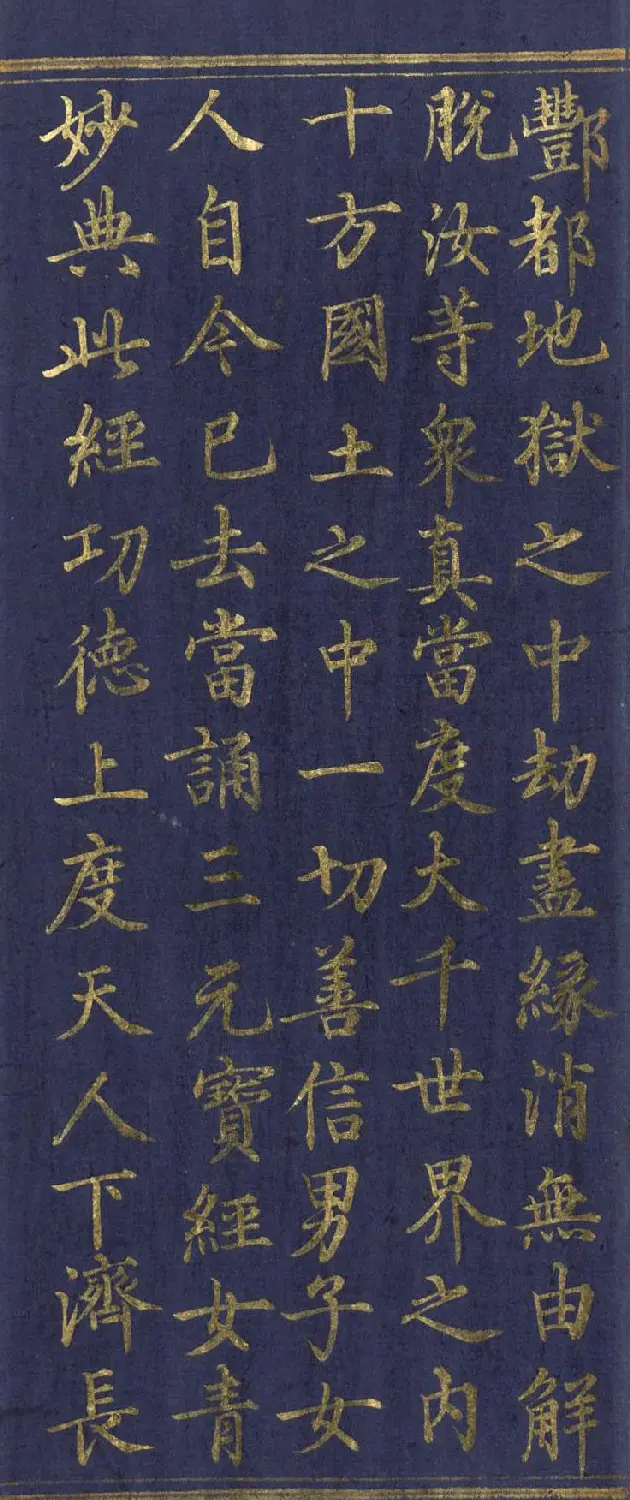 酆都地獄之中劫盡緣消無由解
脫汝等眾真當度大千世界之內
十方國土之中一切善信男子女
人自今已去當誦三元寶經女青
妙典此經功德上度天人下濟長